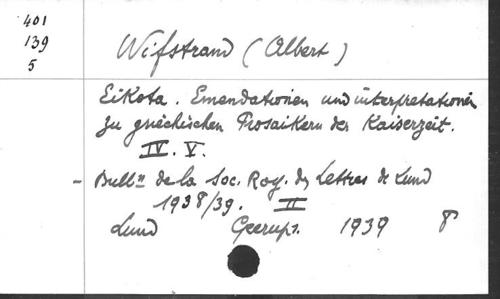 401
139
5
Wifstrand (Albert)
Eikota. Emendationen und interpretationen
zu griechischen Prosaikern der Kaiserzeit.
IV. V.
- Bull.n de la Soc. Roy. des Lettres de Lund
1938/39. II
Lund Gleerups. 1939 8